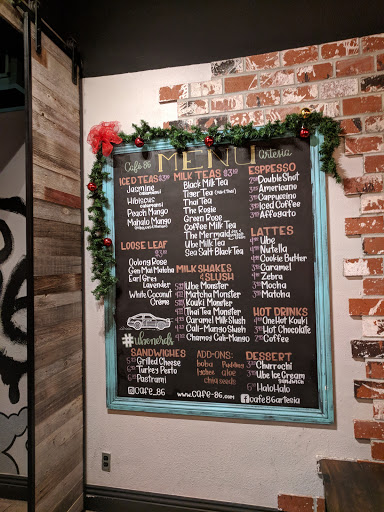 Café 86
MENU
Artesia
ICED TEAS
Jasmine
Hibiscus
Peach Mango
Mahalo Mango
LOOSE LEAF
Oolong Rose
Gen Mai Matcha
Earl Grey
Lavender
White Coconut
Crème
#ubenerds
SANDWICHES
Grilled Cheese
Turkey Pesto
Pastrami
cafe_86
MILK TEAS
Black Milk Tea
Tiger Tea
Thai Tea
The Rogie
Green Rose
Coffee Milk Tea
The Mermaid
Ube Milk Tea
Sea Salt Black Tea
MILKSHAKES
& SLUSH
Ube Monster
Matcha Monster
Kouki Monster
Thai Tea Monster
Caramel Milk Slush
Cali-Mango Slush
Chamoy Cali-Mango
ADD-ONS:
boba
Pudding
lychee
aloe
chia seeds
www.cafe-86.com
ESPRESSO
Double Shot
Americano
Cappuccino
Iced Coffee
Affogato
LATTES
Ube
Nutella
Cookie Butter
Caramel
Zebra
Mocha
Matcha
HOT DRINKS
Hot Kouki
Hot Chocolate
Coffee
DESSERT
Churrochi
Ube Ice Cream
Sandwich
Halo Halo
cafe86artesia